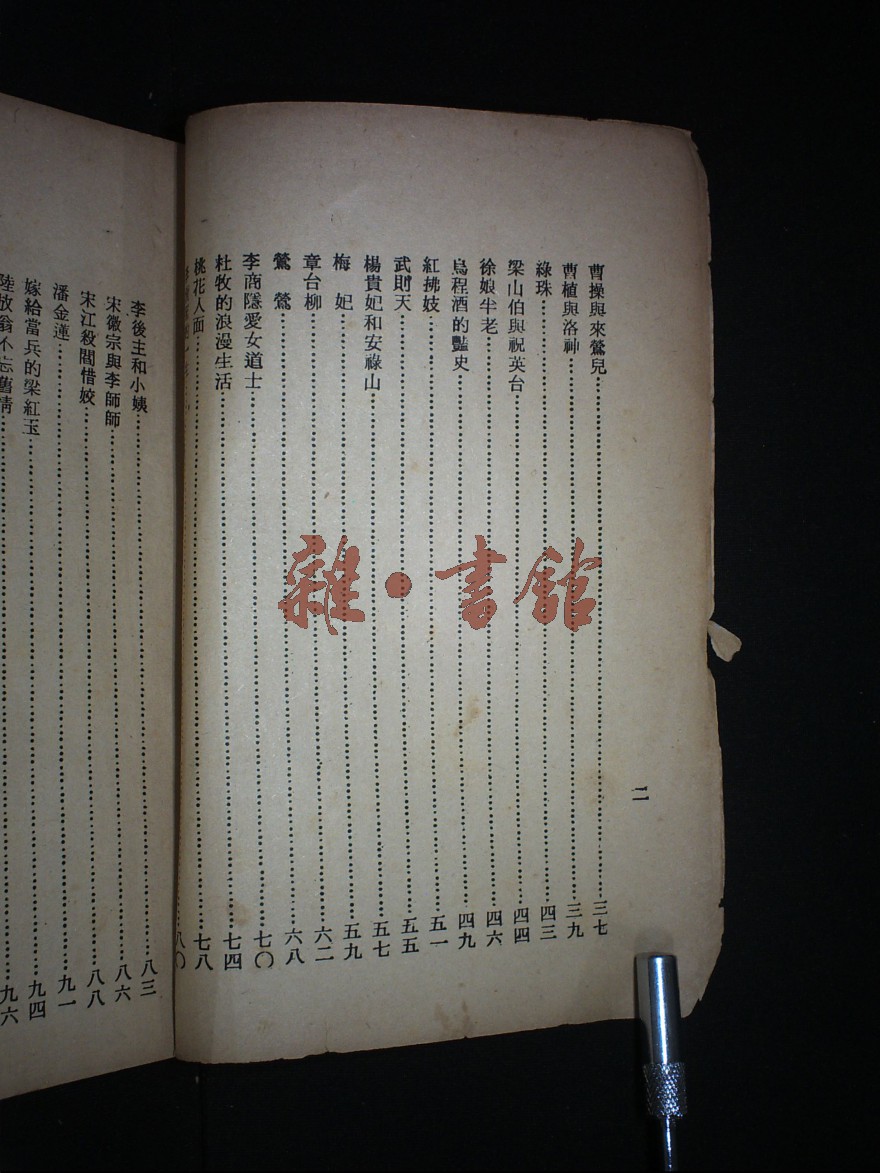 二
曹操與來鶯兒……三七
曹植與洛神……三九
綠珠……四三
梁山伯與祝英台……四四
徐娘半老……四六
烏程酒的豔史……四九
紅拂妓……五一
武則天……五五
楊貴妃和安祿山……五七
梅　妃……五九
章台柳……六二
鶯　鶯……六八
李商隱愛女道士……七〇
杜牧的浪漫生活……七四
桃花人面……七八
……八〇
李後主和小姨……八三
宋徽宗與李師師……八六
宋江殺閻惜姣……八八
潘金蓮……九一
嫁給當兵的梁紅玉……九四
陸放翁不忘舊情……九六
雜·書館